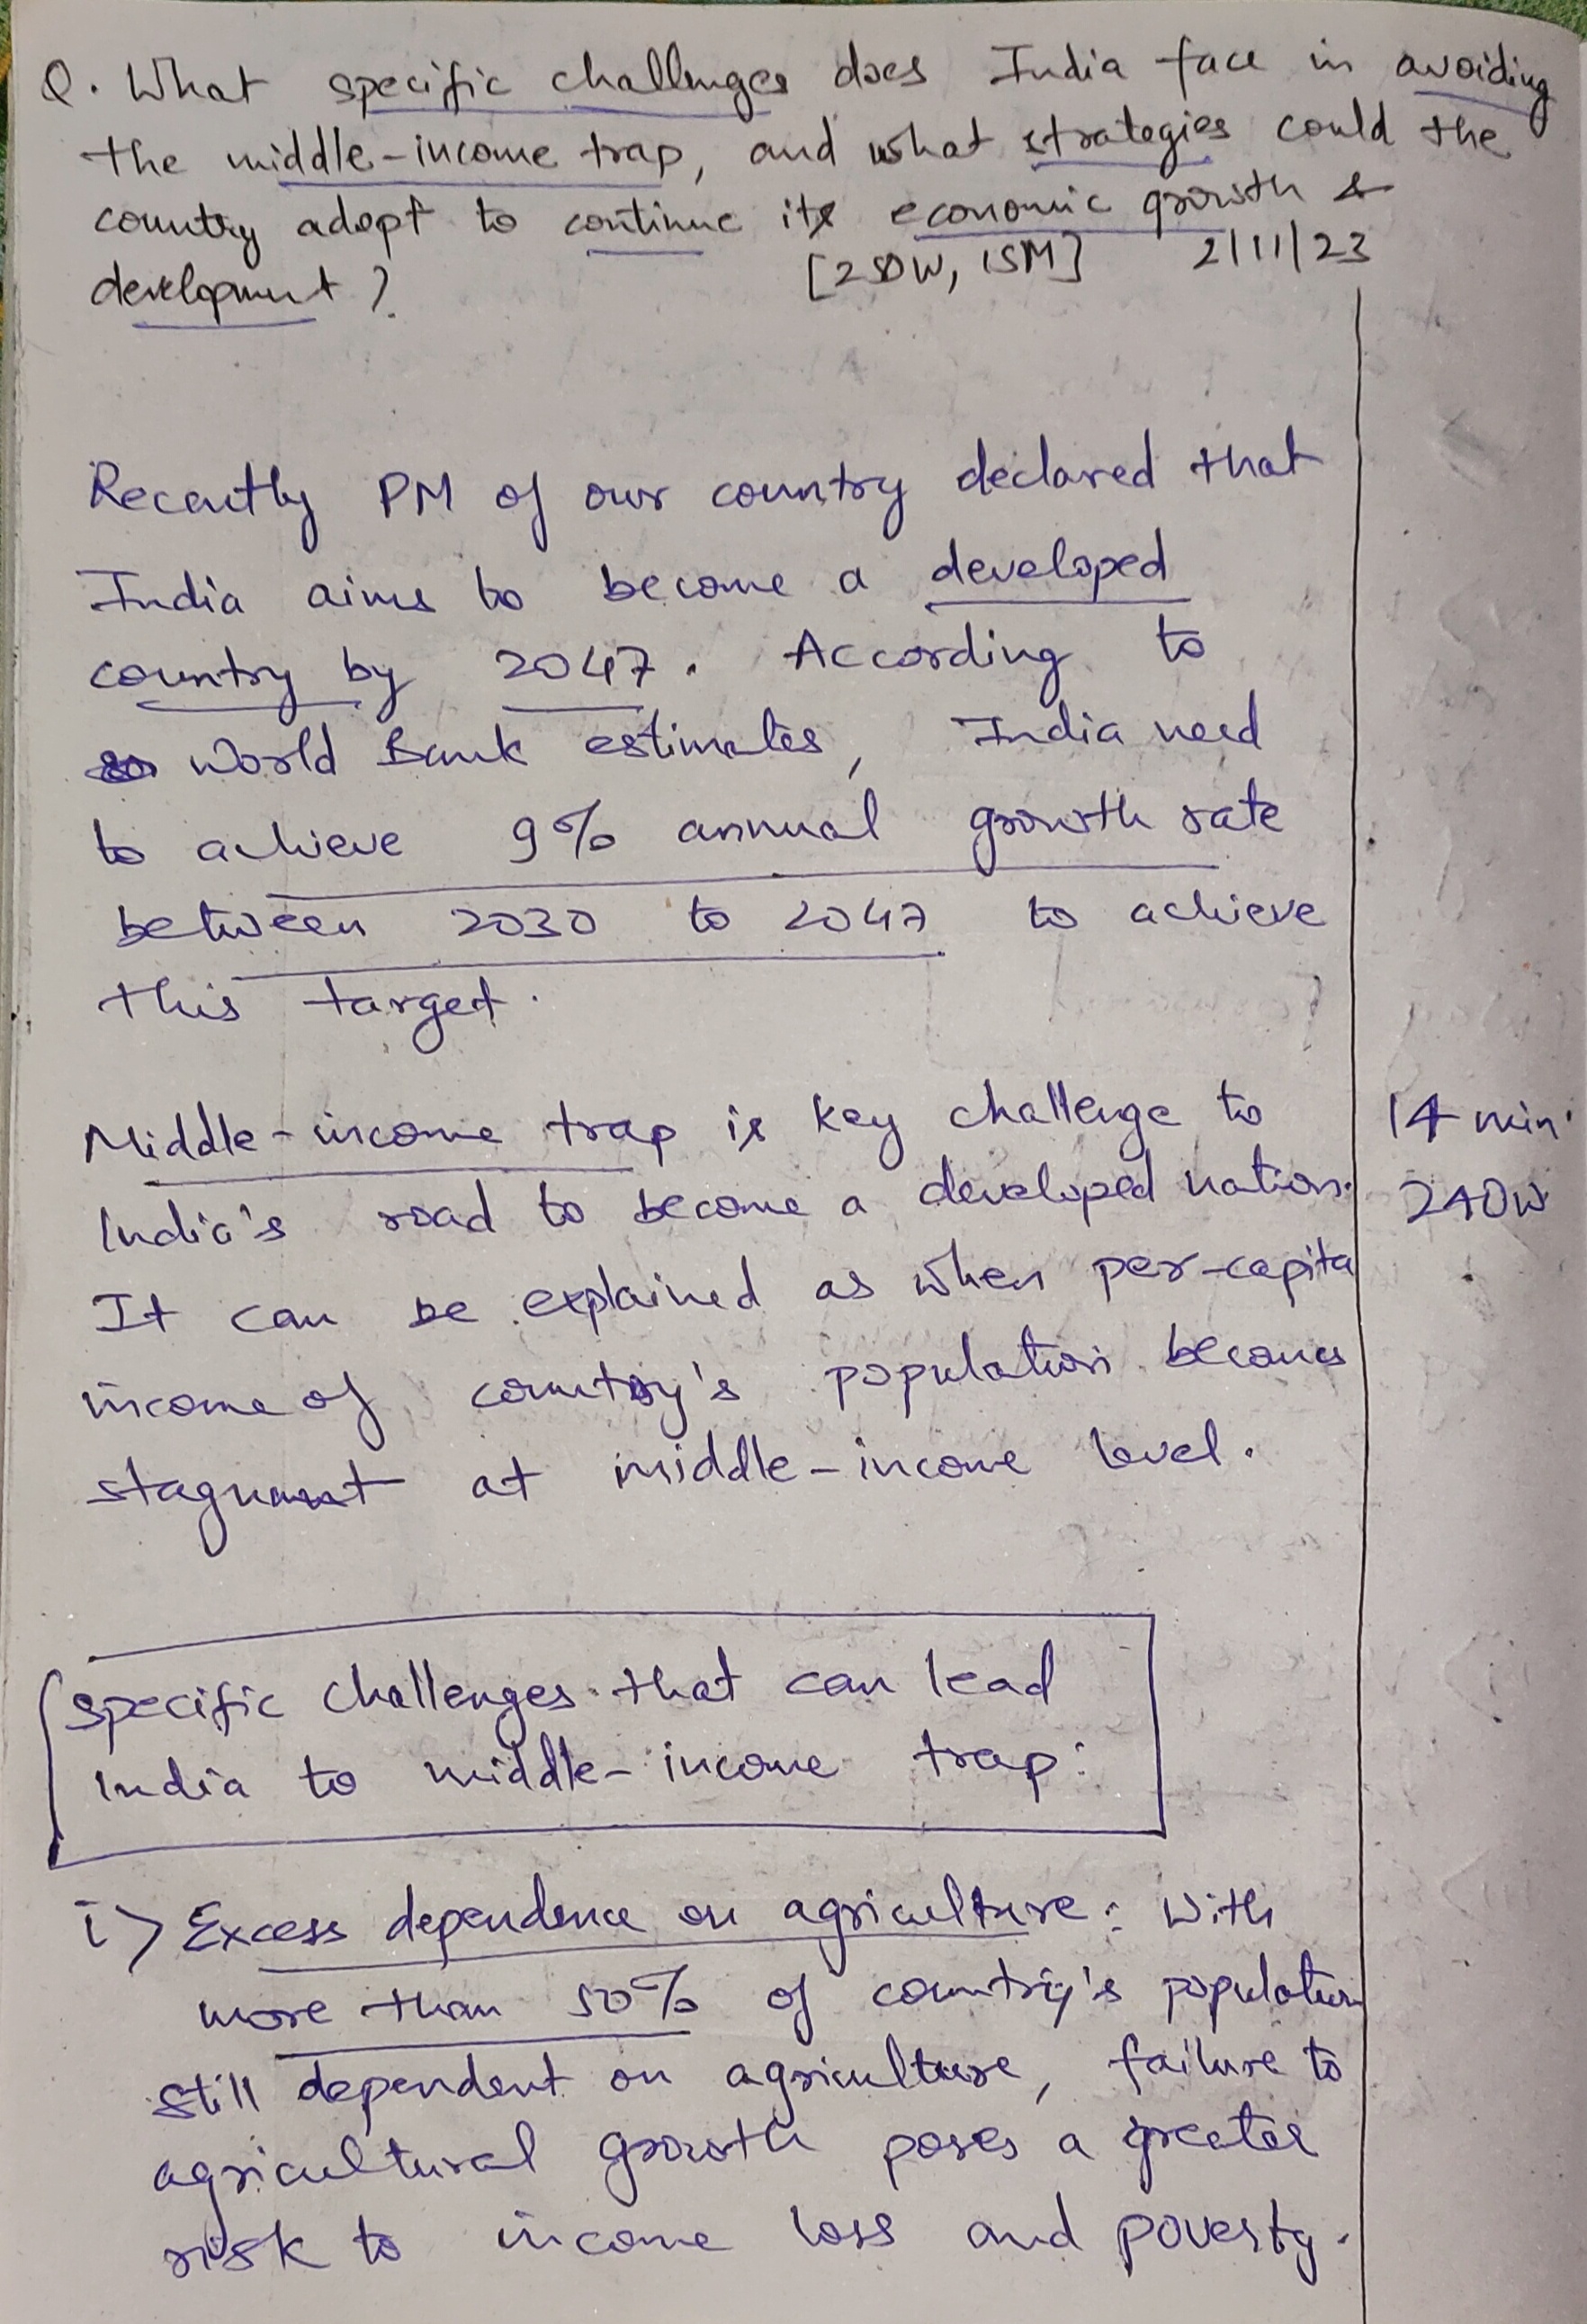 Q. What specific challenges does India face in avoiding
the middle-income trap, and what strategies could the
country adopt to continue its economic growth &
development?
[250W, 15M] 2/11/23
Recently PM of our country declared that
India aims to become a developed
country by 2047. According to
World Bank estimates, India need
to achieve 9% annual growth rate
between 2030 to 2047 to achieve
this target.
Middle-income trap is key challenge to
India's road to become a developed nation.
It can be explained as when per-capita
income of country's population becomes
stagnant at middle-income level.
14 min
240W
Specific challenges that can lead
India to middle-income trap:
i> Excess dependence on agriculture: With
more than 50% of country's population
still dependent on agriculture, failure to
agricultural growth poses a greater
risk to income loss and poverty.